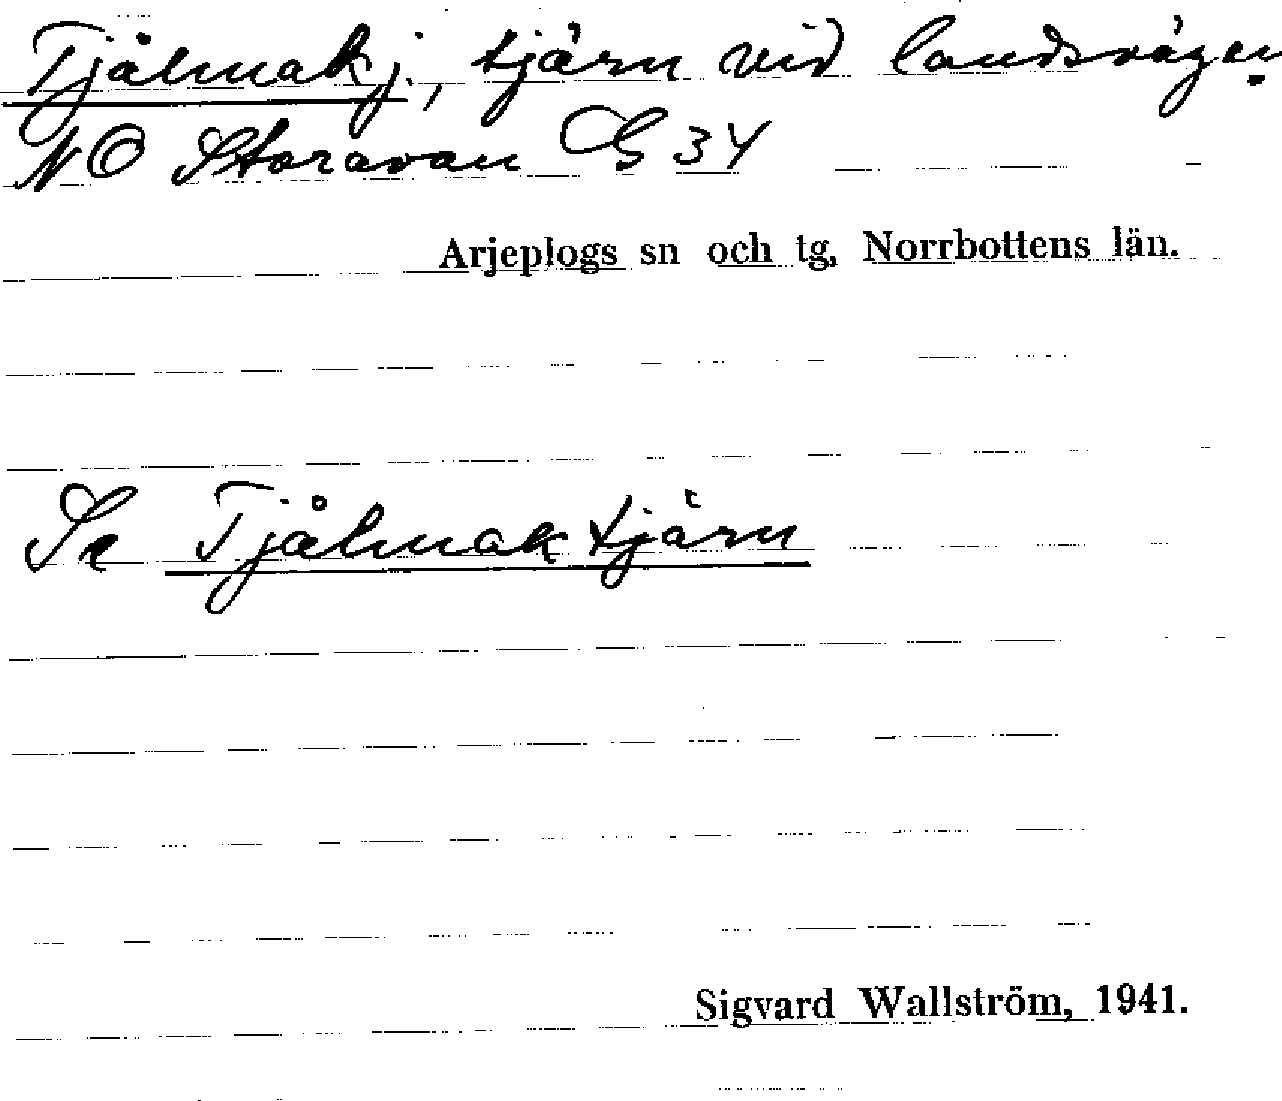 Tjålmakj., tjärn vid landsvägen
NO Storavan G 34
Arjeplogs sn och tg, Norrbottens län.
Se Tjålmaktjärn
Sigvard Wallström, 1941.